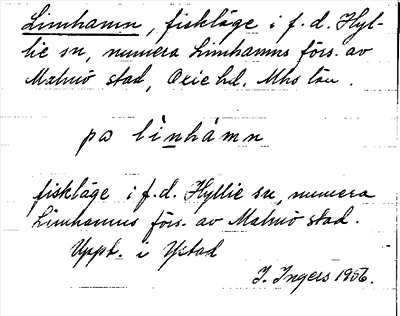 Limhamn, fiskläge i f.d. Hyl-
lie sn, numera Limhamns förs. av
Malmö stad, Oxie hd. Mhs län.
pa lìnhámn
fiskläge i f.d. Hyllie sn, numera
Limhamns förs. av Malmö stad.
Uppt. i Ystad
I. Ingers 1956.